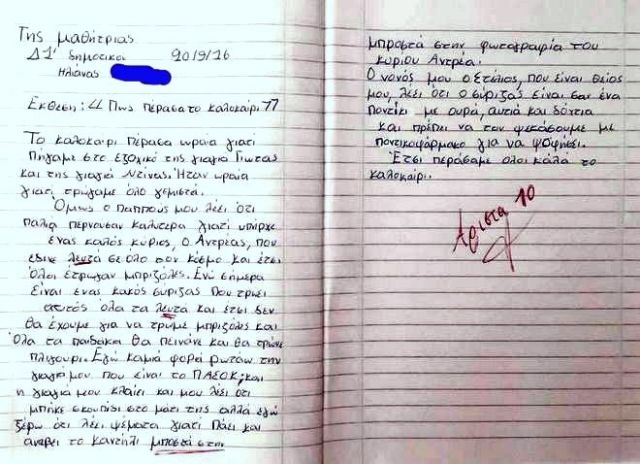 Της μαθήτριας
Δ1' δημοτικου 20/9/16
Ηλιάνας
Έκθεση: "Πως πέρασα το καλοκαίρι"
Το καλοκαίρι πέρασα ωραία γιατί
πήγαμε στο εξοχικό της γιαγιά Γιωτας
και της γιαγιά Ντίνας. Ήταν ωραία
γιατί τρώγαμε όλο γεμιστά.
Όμως ο παππούς μου λέει ότι
παλιά περνουσαν καλυτερα γιατί υπήρχε
ένας καλός κύριος, ο Αντρέας, που
εδινε λευτά σε ολο τον κόσμο και έτσι
όλοι έτρωγαν μπριζόλες. Ενώ σήμερα
είναι ένας κακός σύριζας που τρώει
αυτός όλα τα λευτά και ετσι δεν
θα έχουμε για να τρώμε μπριζόλες και
όλα τα παιδάκια θα πεινάνε και θα τρώνε
πλιγουρι. Εγώ καμιά φορά ρωτάω την
γιαγιά μου που είναι το ΠΑΣΟΚ; και
η γιαγιά μου κλαίει και μου λέει ότι
μπήκε σκουπίδι στο μάτι της αλλά εγώ
ξέρω ότι λέει ψέματα γιατί πάει και
ανάβει το καντήλι μποστά στην
μπροστά στην φωτογραφία του
κύριου Αντρέα.
Ο νονός μου ο Στέλιος, που είναι θείος
μου, λέει ότι ο σύριζας είναι σαν ένα
ποντίκι με ουρά, αυτιά και δόντια
και πρέπει να τον ψεκάσουμε με
ποντικοφάρμακο για να ψοφήσει.
Έτσι περάσαμε όλοι καλά το
καλοκαίρι.
Αριστα 10